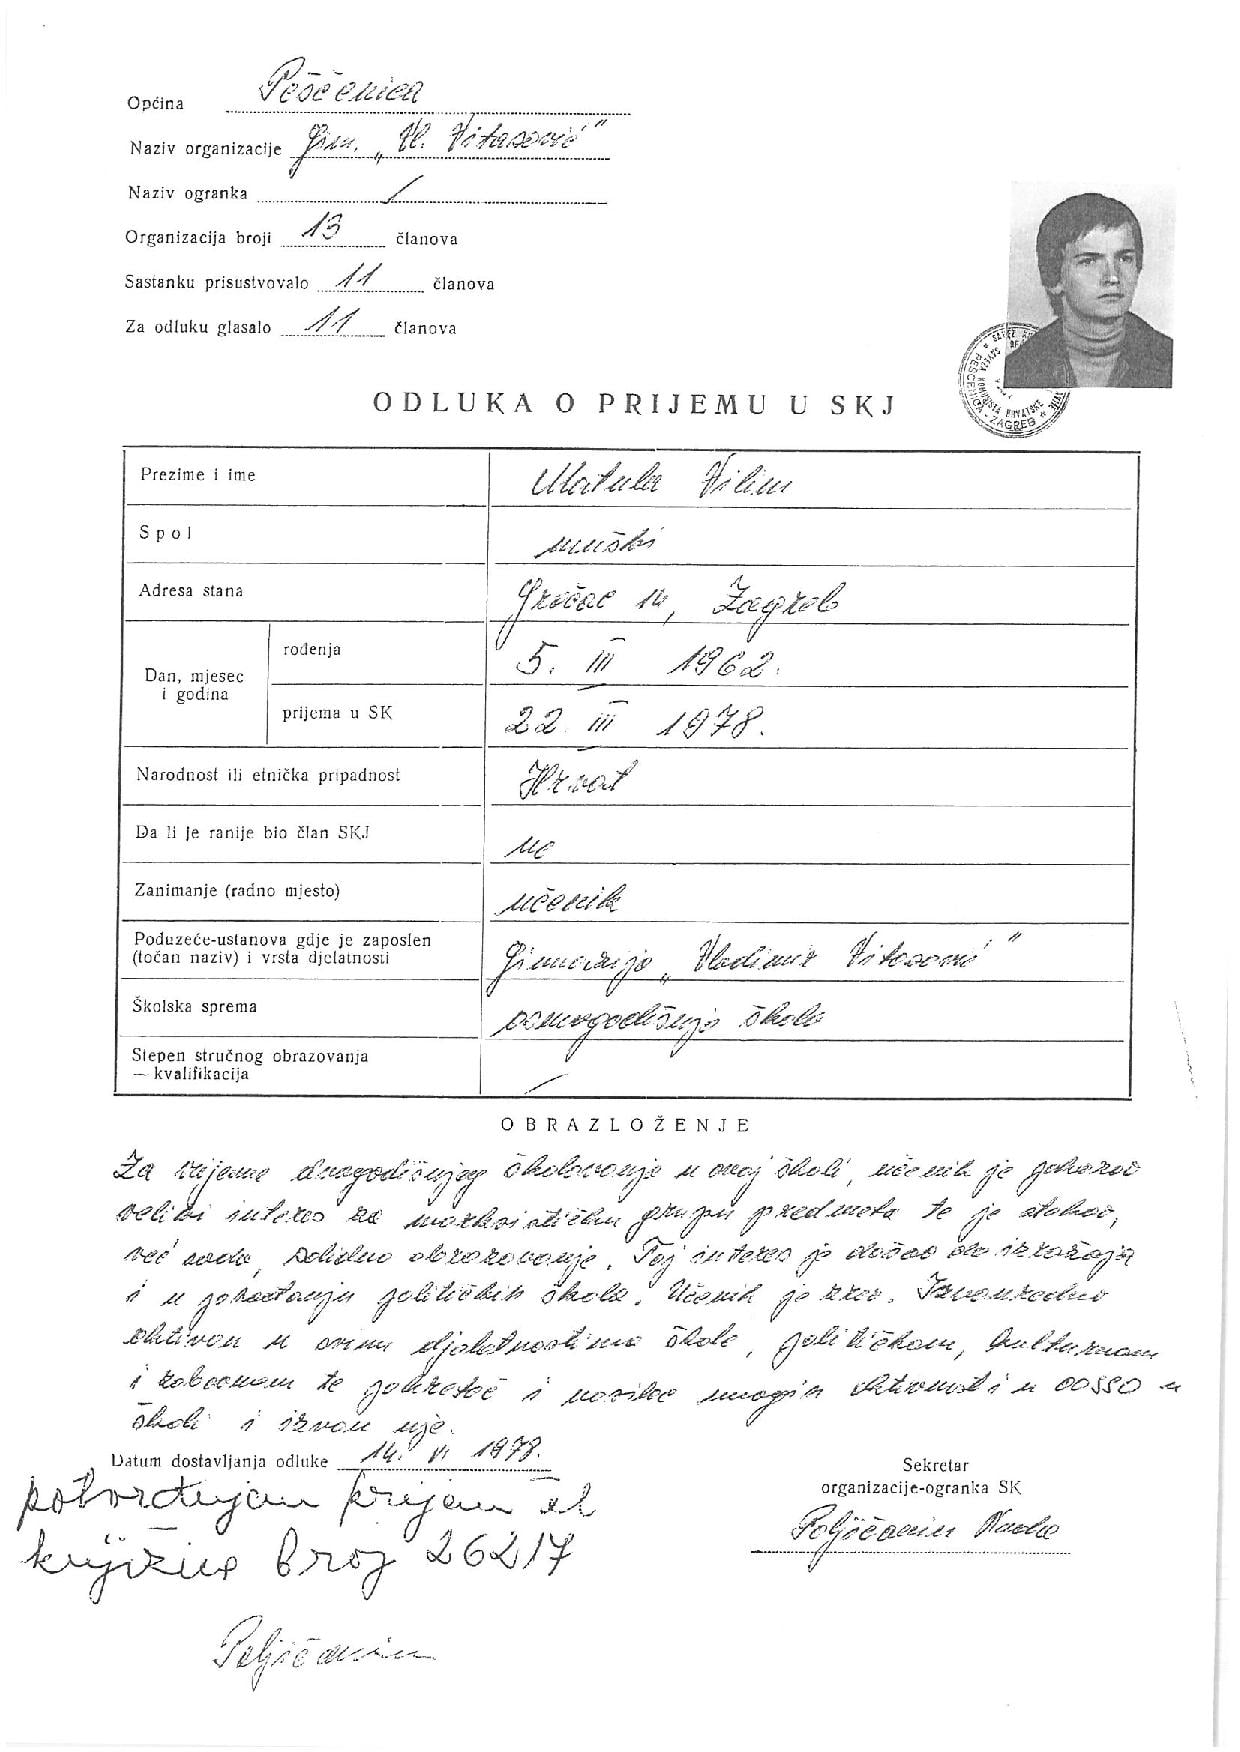 Općina Peščenica
Naziv organizacije Gim. „Vl. Vitasović"
Naziv ogranka /
Organizacija broji 13 članova
Sastanku prisustvovalo 11 članova
Za odluku glasalo 11 članova
PEŠČENICA - ZAGREB
ODLUKA O PRIJEMU U SKJ
Prezime i ime Matula Vilim
Spol muški
Adresa stana Grečac 14, Zagreb
Dan, mjesec i godina rođenja 5. III 1962.
prijema u SK 22. III 1978.
Narodnost ili etnička pripadnost Hrvat
Da li je ranije bio član SKJ ne
Zanimanje (radno mjesto) učenik
Poduzeće-ustanova gdje je zaposlen
(točan naziv) i vrsta djelatnosti Gimnazija „Vladimir Vitasović"
Školska sprema osmogodišnja škola
Stepen stručnog obrazovanja
— kvalifikacija /
OBRAZLOŽENJE
Za vrijeme dvogodišnjeg školovanja u ovoj školi, učenik je pokazao
veliki interes za marksističku grupu predmeta te je stekao,
već sada, solidno obrazovanje. Taj interes je došao do izražaja
i u pohađanju političkih škola. Učenik je zreo. Izvanredno
aktivan u svim djelatnostima škole, političkom, kulturnom
i zabavnom te pokretač i nosilac mnogih aktivnosti u OOSSO u
školi i izvan nje.
Datum dostavljanja odluke 14. VI 1978.
Sekretar
organizacije-ogranka SK
Poljičanin Nada
potvrđujem prijem čl
knjižice broj 26217
Poljičanin